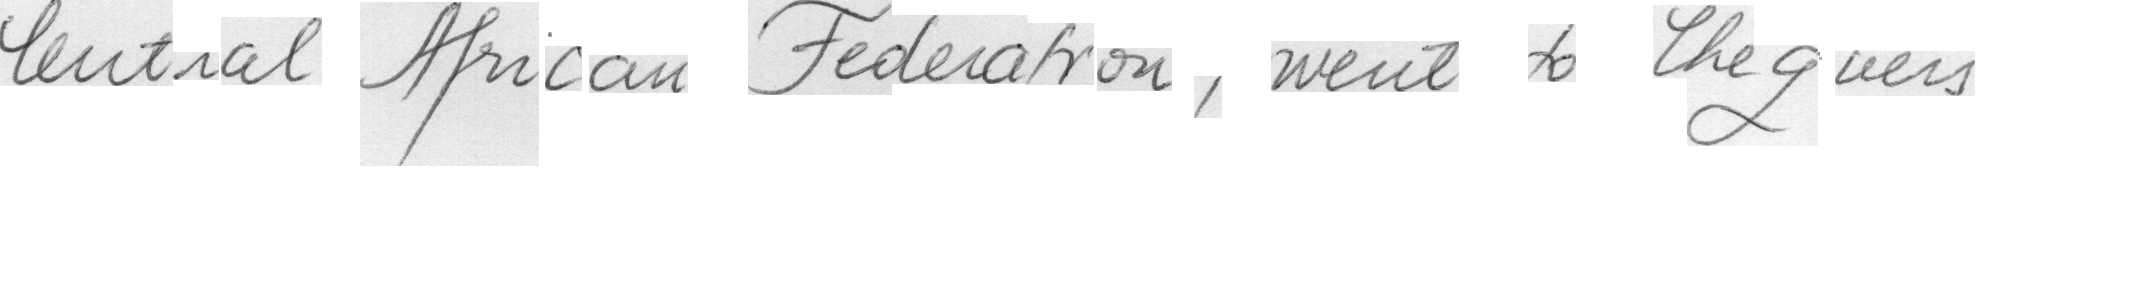 Central African Federation, went to Chequers